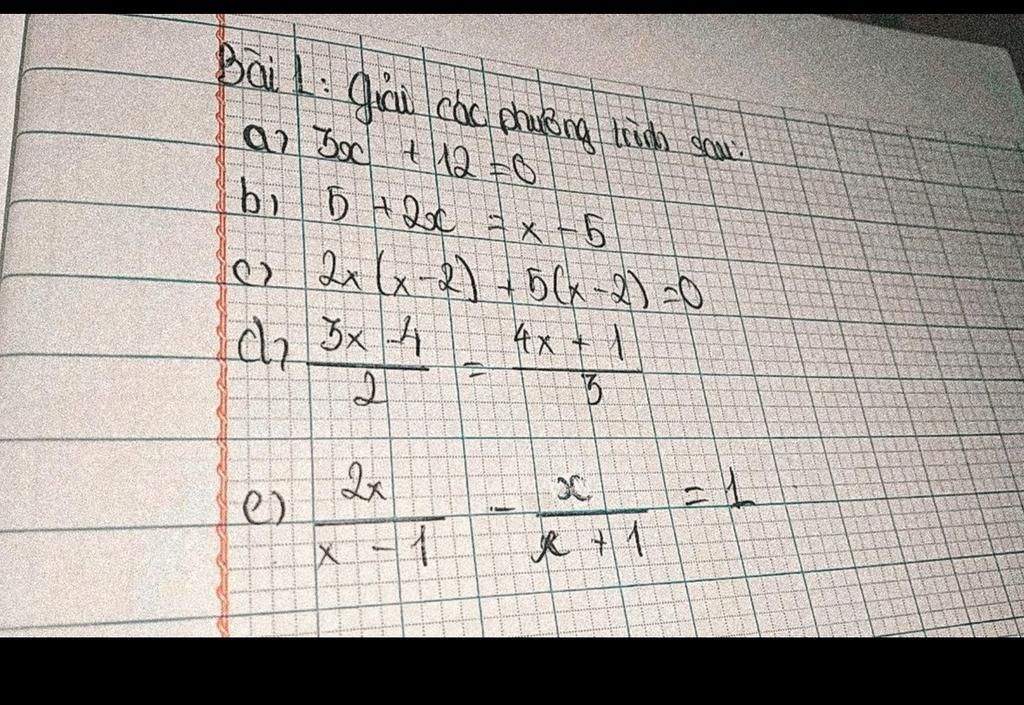 Bài 1: Giải các phương trình sau:
a) 3x + 12 = 0
b) 5 + 2x = x - 5
c) 2x(x-2) + 5(x-2) = 0
d) \frac{3x-4}{2} = \frac{4x+1}{3}
e) \frac{2x}{x-1} - \frac{x}{x+1} = 1